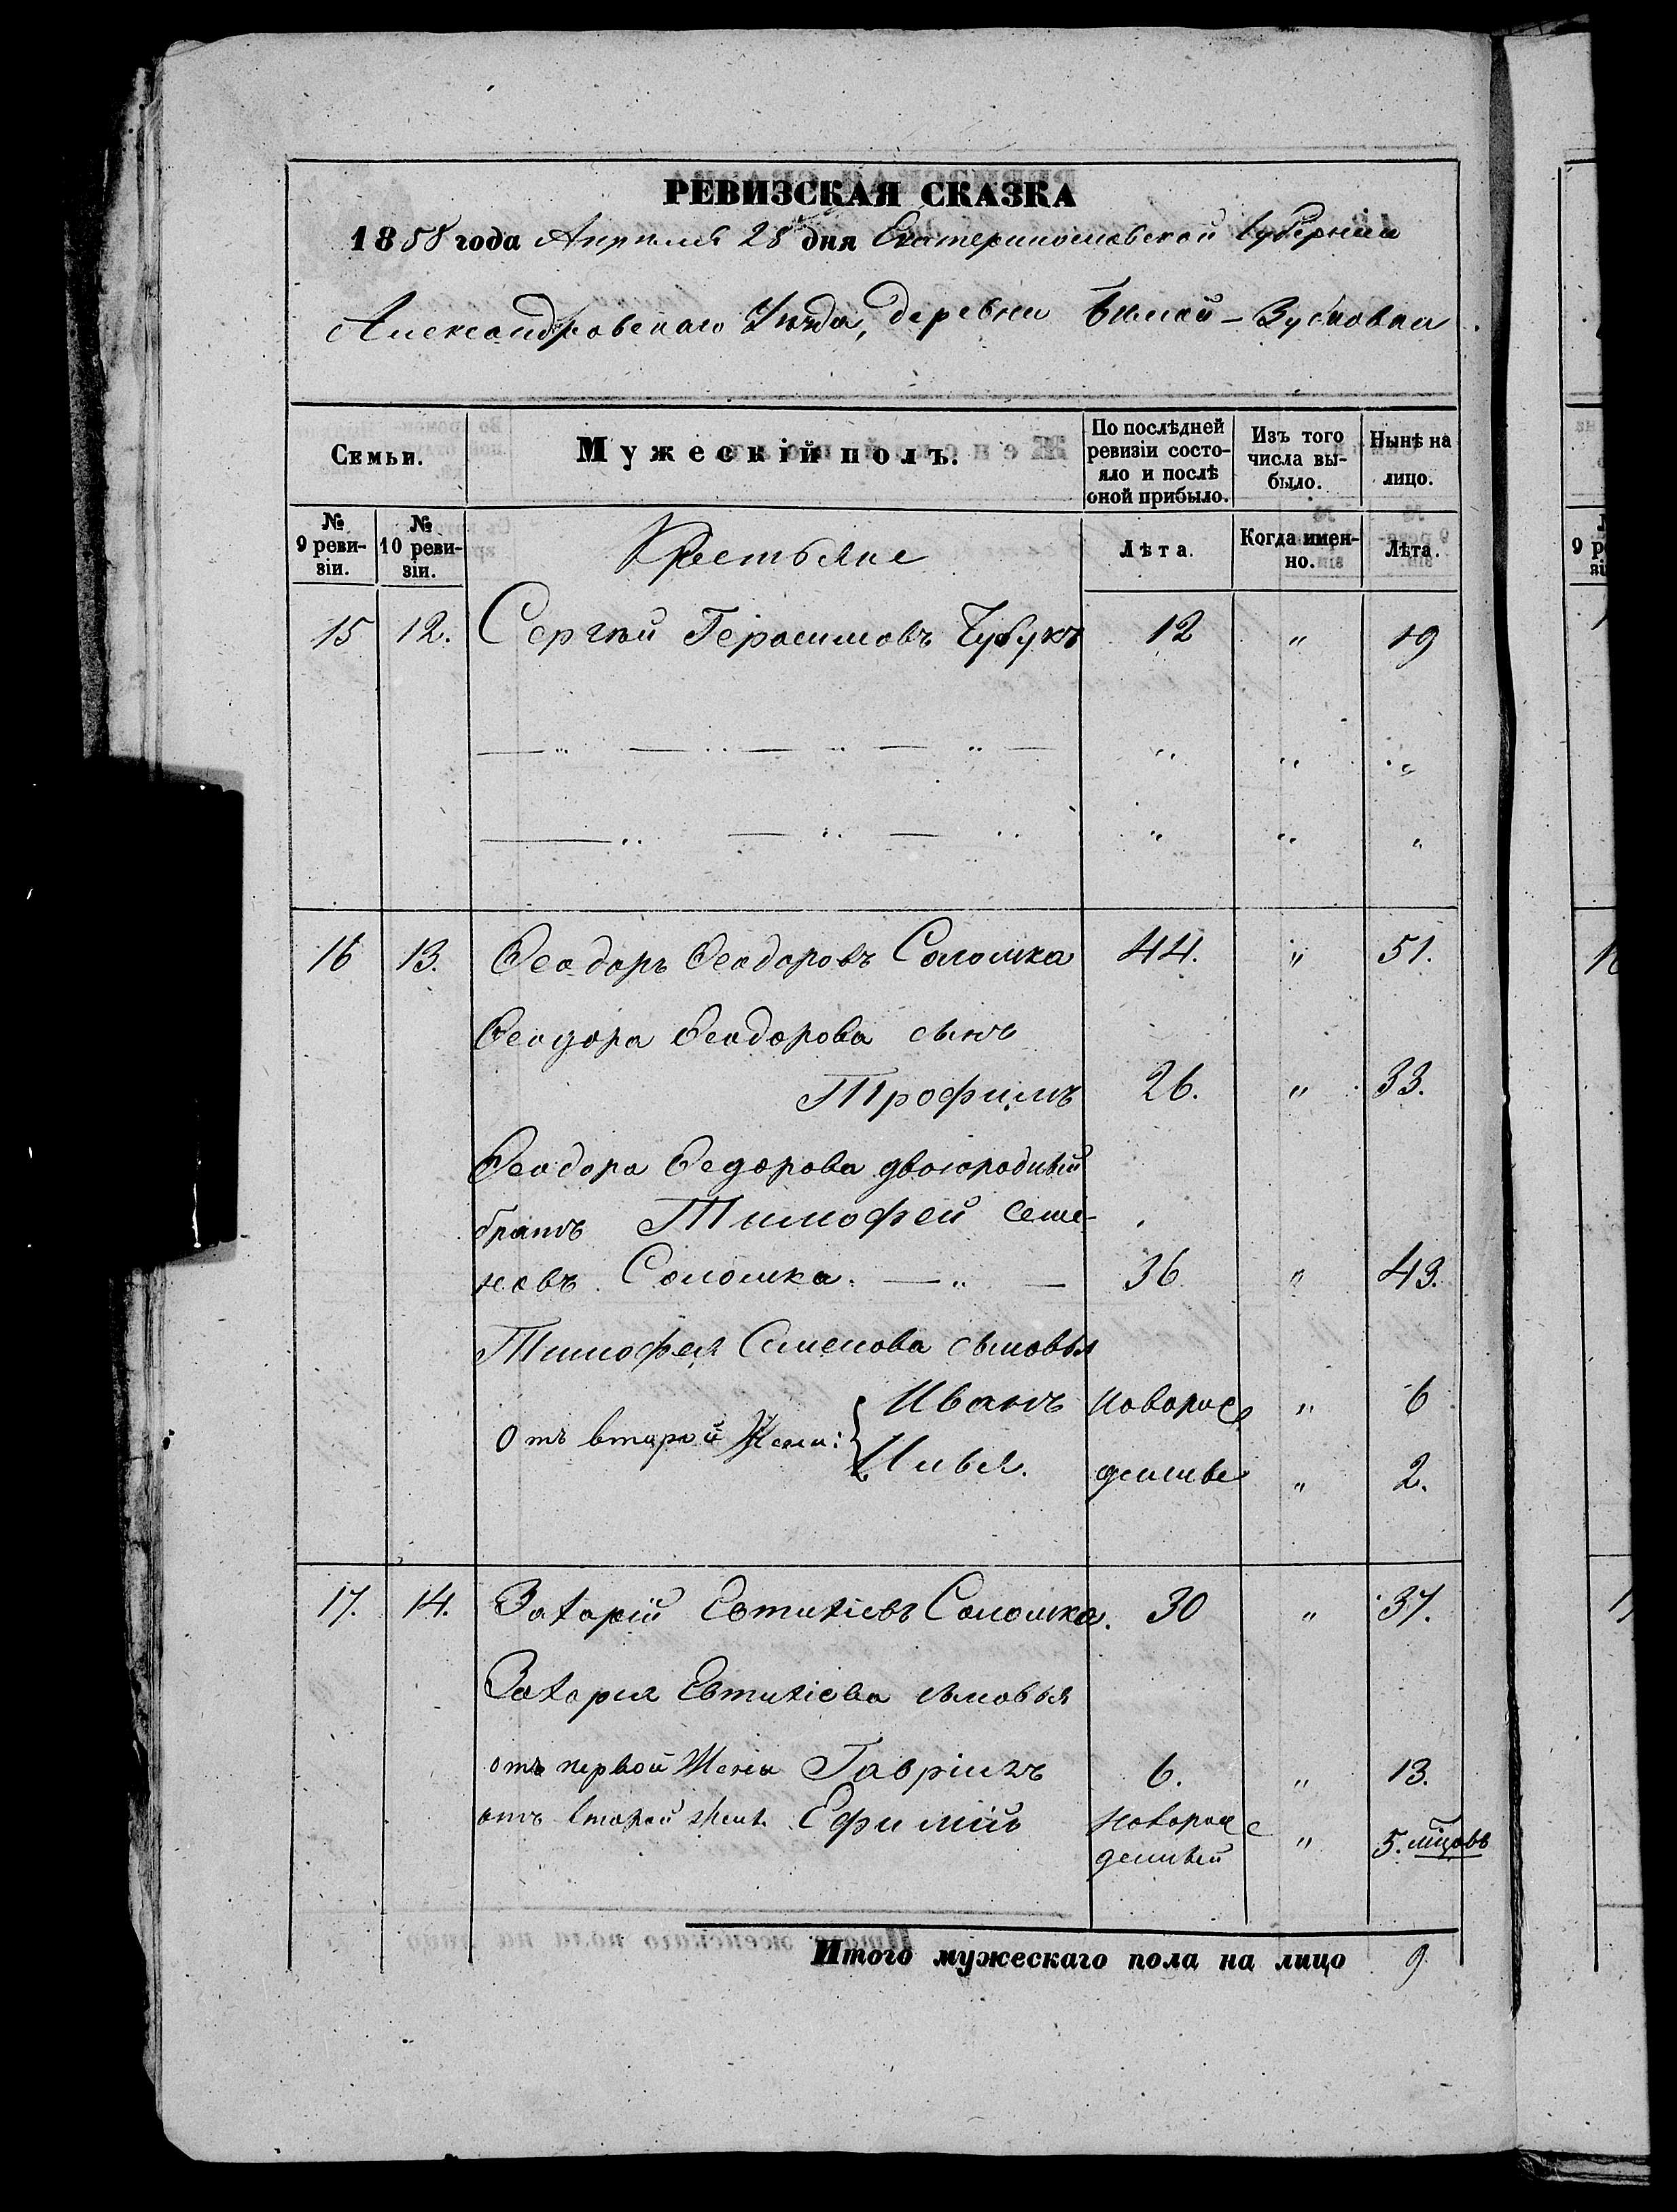 РЕВИЗСКАЯ СКАЗКА
1858 года Апреля 28 дня Екатеринославской Губерніи
Александровскаго Уѣзда, деревни Зубковой
Семьи.
Мужескій полъ.
По послѣдней ревизіи состояло и послѣ оной прибыло.
Изъ того числа выбыло.
Нынѣ на лицо.
№ 9 ревизіи.
№ 10 ревизіи.
Крестьяне
Лѣта.
Когда именно.
Лѣта.
15 12. Сергѣй Герасимовъ Чубукъ 12 " 19
16 13. Феодоръ Феодоровъ Соломка 44. " 51.
Феодора Феодорова сынъ
Трофимъ 26. " 33.
Феодора Федорова двоюродный
братъ Тимофей Семе-
новъ Соломка. 36 " 43.
Тимофея Семенова сыновья
Иванъ новорож " 6
Отъ второй Жены:
Илья. денные " 2.
17. 14. Захарій Евтихіевъ Соломка. 30 " 37.
Захарія Евтихіева сыновья
отъ первой Жены Гавріилъ 6. " 13.
отъ второй жены Ефимій новорож
денный " 5. мѣсяцовъ
Итого мужескаго пола на лицо 9